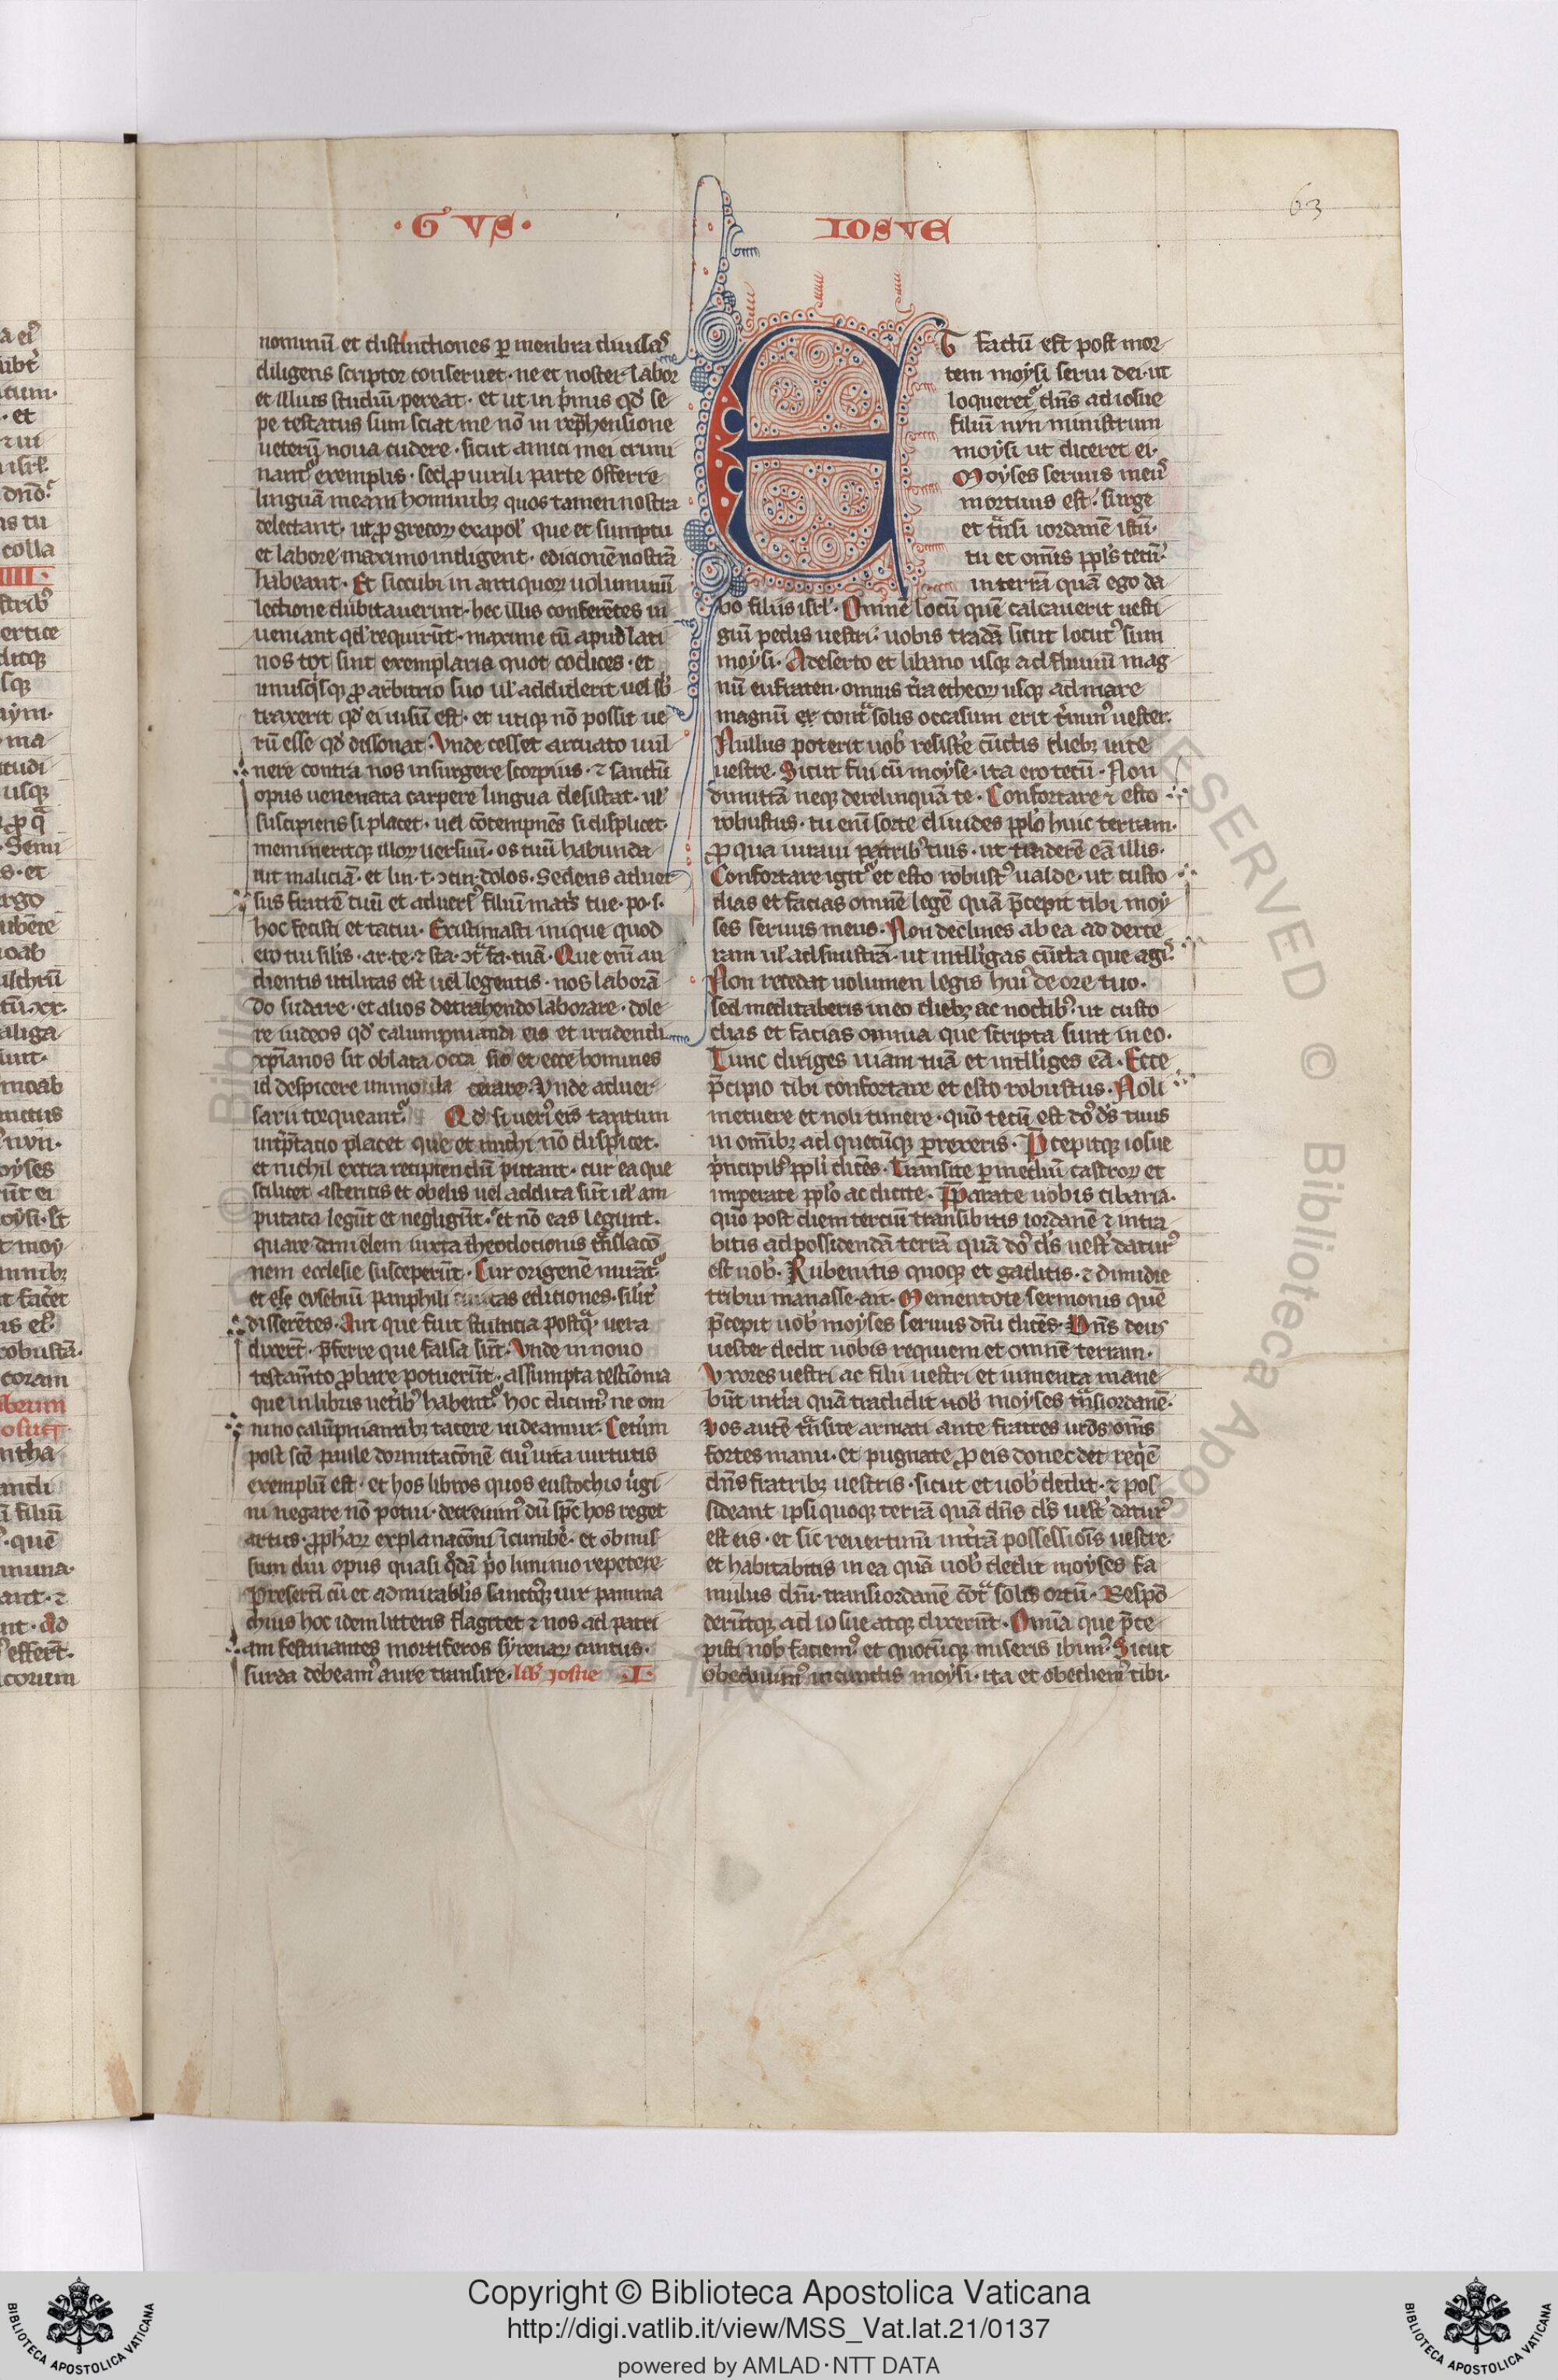 ·G VS·
IOSVE
63
nominū et distinctiones p̄ menbra diuisas
diligens scriptor conseruet· ne et noster labor
et illius studiū pereat· et ut in p̓mis qd̓ se
pe testatus sum sciat me nō in rep̄hensione
ueterū noua cudere· sicut amici mei crimi
nant᷒ exemplis· sed ꝓ uirili parte offerre
linguā meam hominibꝫ quos tamen nostra
delectant· ut ꝓ grecoꝝ exapol̓ que et sumptu
et labore maximo intligent· edicionē nostrā
habeant· Et sicubi in antiquoꝝ uoluminū
lectione dubitauerint· hec illis conferētes in
ueniant qd̓ requirūt· maxime cū apud lati
nos tot sint exemplaria quot codices· et
unusq̓sqꝫ ꝓ arbitrio suo ul̓ addiderit uel sb̓
traxerit qd̓ ei uisū est· et utiqꝫ nō possit ue
rū esse qd̓ dissonat· Vnde cesset arcuato uul
nere contra nos insurgere scorpius· ⁊ sanctū
opus uenenata carpere lingua desistat· ul̓
suscipiens si placet· uel cōtempnēs si displicet·
memineritqꝫ illoꝝ uersuū· os tuū habunda
uit maliciā· et lin· t· ↄcin· dolos· Sedens aduer
sus fratrē tuū et aduers᷒ filiū mat̓s tue· po· s·
hoc fecisti et tacui· Existimasti inique quod
ero tui sil̓is· ar· te· ⁊ sta· ↄt̄ fa· tuā· Que enī au
dientis utilitas est uel legentis· nos laborā
do sudare· et alios detrahendo laborare· dole
re iudeos qd̓ calumpniandi eis et irridendi
xp̄ianos sit oblata occa sio et ecce homines
id despicere immo
Vnde aduer
sarii torqueant᷒
Qd̓ si uet᷒ eis tantum
int̓p̄tacio placet que et michi nō displicet·
et nichil extra recipiendū putant· cur ea que
scilicet astericis et obelis uel addita sūt uel am
putata legūt et negligūt· et nō eas legunt·
quare danielem iuxta theodocionis trāslacō
nem ecclesie susceperūt· Cur origenē mirāt᷒
et
eusebiū pamphili
editiones· sil̓it̓
disserētes· Aut que fuit stulticia postqᷓ uera
dixerīt· p̄ferre que falsa sūt· Vnde in nouo
testam̄to ꝓbare potuerūt· assumpta testīonia
que in libris uet̓ibꝫ habent᷒ hoc dicim᷒ ne om
nino calūpniantibꝫ tacere uideamur· Cet̓um
post scē paule dormitacōnē cui᷒ uita uirtutis
exemplū est· et hos libros quos eustochio u̓gi
ni negare nō potui· decreuim᷒ dū spc̄ hos reget
artus· ꝓphaꝝ explanacōni īcumbē· et obmis
sum diu opus quasi q̓dā p̓o liminio repetere
Presertī cū et admirabil̓is sanctusqꝫ uir pamma
chius hoc idem litteris flagitet ⁊ nos ad patri
am festinantes mortiferos syrenaꝝ cantus·
surda debeam᷒ aure transire· lib̓ iosue ·I·
ET factū est post mor
tem moysi serui dei· ut
loqueret᷒ dn̄s ad iosue
filiū nun ministrum
moysi ut diceret ei·
Moyses seruus me᷒
mortuus est· surge
et trāsi iordanē istū·
tu et omīs ppl̓s tecū·
in terrā quā ego da
bo filiis isrl̓· Omnē locū quē calcauerit uesti
giū pedis uestri· uobis tradā sicut locut᷒ sum
moysi· A deserto et libano usqꝫ ad fluuiū mag
nū eufraten· omnis t̓ra etheoꝝ usqꝫ ad mare
magnū et contᷓ solis occasum erit t̓min᷒ uester·
Nullus poterit uob̓ resiste cūctis diebꝫ uite
uestre· Sicut fui cū moyse· ita ero tecū· Non
dimittā neqꝫ derelinquā te· Confortare ⁊ esto
robustus· tu enī sorte diuides ppl̓o huic terram·
ꝓ qua iuraui patrib᷒ tuis· ut traderē eā illis·
Confortare igit᷒ et esto robust᷒ ualde· ut custo
dias et facias omnē legē quā p̄cepit tibi moy
ses seruus meus· Non declines ab ea ad dexte
ram ul̓ ad sinistrā· ut intlligas cūcta que agis·
Non recedat uolumen legis hui᷒ de ore tuo·
sed meditaberis in eo diebꝫ ac noctib᷒· ut custo
dias et facias omnia que scripta sunt in eo·
Tunc diriges uiam tuā et intlliges eā· Ecce
p̄cipio tibi confortare et esto robustus· Noli
metuere et noli timere· quō tecū est do᷒ ds̄ tuus
in omībꝫ ad quecūqꝫ p̄rexeris· P̄cepitqꝫ iosue
p̓ncipib᷒ ppl̓i dicēs· Transite p̄ mediū castroꝝ et
imperate ppl̓o ac dicite· P̄parate uobis cibaria·
quō post diem terciū transibitis iordanē ⁊ intra
bitis ad possidendā terrā quā do᷒ ds̄ uest̓ datur᷒
est uob̓· Rubenitis quoqꝫ et gaditis· ⁊ dimidie
tribui manasse· ait· Mementote sermonis quē
p̄cepit uob̓ moyses seruus dn̄i dicēs· Dn̄s deus
uester dedit uobis requiem et omnē terram·
Vxores uestri ac filii uestri et iumenta mane
būt int̓ra quā tradidit uob̓ moyses trāsiordanē·
Vos autē trāsite armati ante fratres ur̄os omīs
fortes manu· et pugnate ꝓ eis donec det req̓ē
dn̄s fratribꝫ uestris· sicut et uob̓ dedit· ⁊ pos
sideant ipsi quoqꝫ terrā quā dn̄s ds̄ uest̓ datur᷒
est eis· et sic reuertimī int̓rā possessiōis uestre·
et habitabitis in ea quā uob̓ dedit moyses fa
mulus dn̄i· transiordanē cōtᷓ solis ortū· Respō
derūtqꝫ ad iosue atqꝫ dixerūt· Omīa que p̄ce
pisti nob̓ faciem᷒ et quocūqꝫ miseris ibim᷒· Sicut
obediuim᷒ in cunctis moysi· ita et obediem᷒ tibi·
Copyright © Biblioteca Apostolica Vaticana
http://digi.vatlib.it/view/MSS_Vat.lat.21/0137
powered by AMLAD·NTT DATA
BIBLIOTECA APOSTOLICA VATICANA
BIBLIOTECA APOSTOLICA VATICANA